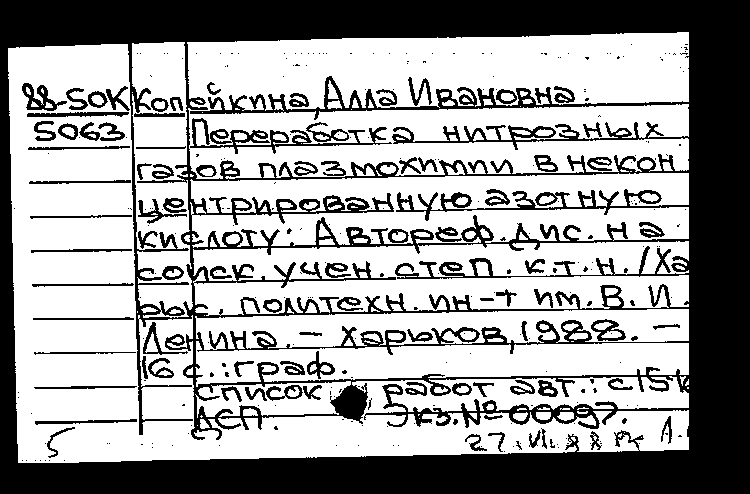 88-50К Копейкина, Алла Ивановна.
5063 Переработка нитрозных
газов плазмохимии в некон
центрированную азотную
кислоту: Автореф. дис. на
соиск. учен. степ. к.т.н. / Ха
рьк. политехн. ин-т им. В. И.
Ленина. — Харьков, 1988. —
16 с.: граф.
Список работ авт.: с 15-16
ДСП. Экз. № 00097.
5 27.VI.88